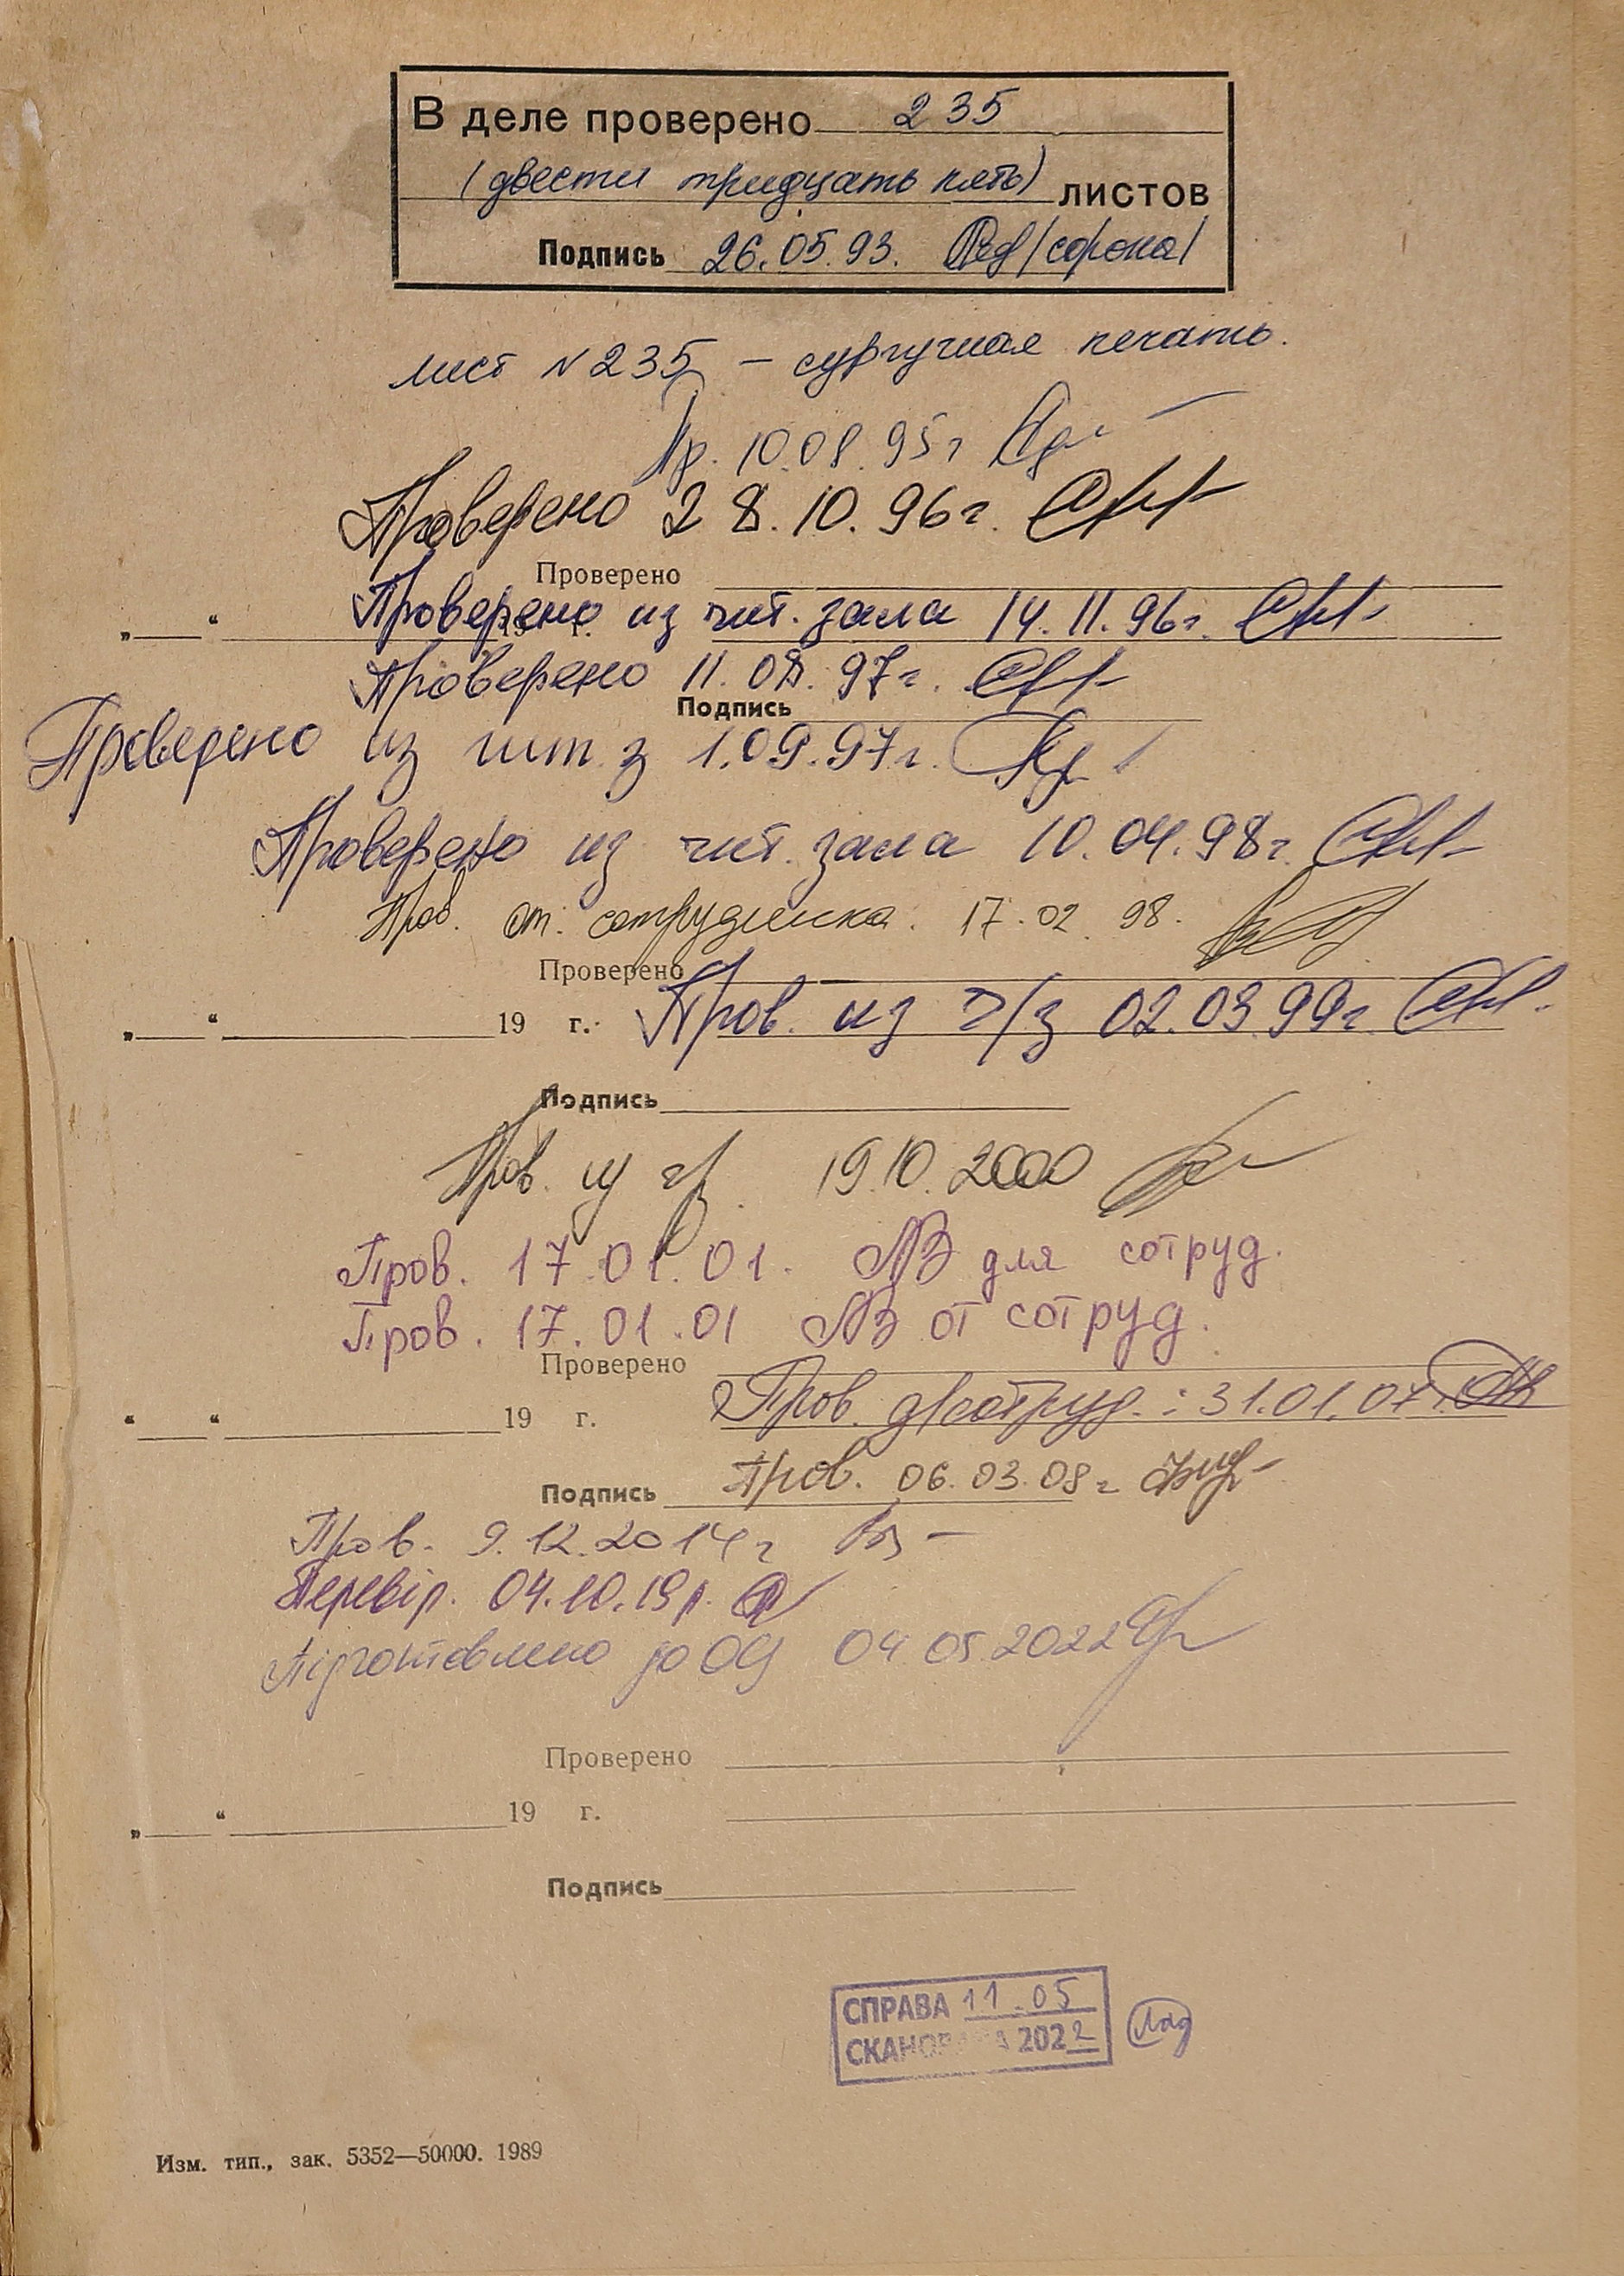 В деле проверено 235
(двести тридцать пять) листов
Подпись 26.05.93. /сорока/
лист N 235 – сургучная печать.
Пр. 10.08.95г
Проверено 28.10.96г.
Проверено
Проверено из чит. зала 14.11.96г.
„ “ 19 г.
Проверено 11.08.97г.
Подпись
Проверено из чит. з 1.09.97г.
Проверено из чит. зала 10.04.98г.
Пров. от. сотрудника. 17.02.98.
Проверено
„ “ 19 г. Пров. из ч/з 02.03.99г
Подпись
Пров. 19.10.2000
Пров. 17.01.01. для сотруд.
Пров. 17.01.01 от сотруд.
Проверено
“ “ 19 г. Пров. д/сотруд.: 31.01.07г.
Подпись Пров. 06.03.08г
Пров. 9.12.2014г
Перевір. 04.10.19р.
Підготовлено до ОЦ 04.05.2022
Проверено
„ “ 19 г.
Подпись
СПРАВА 11.05
СКАНОВАНА 2022
Изм. тип., зак. 5352—50000. 1989